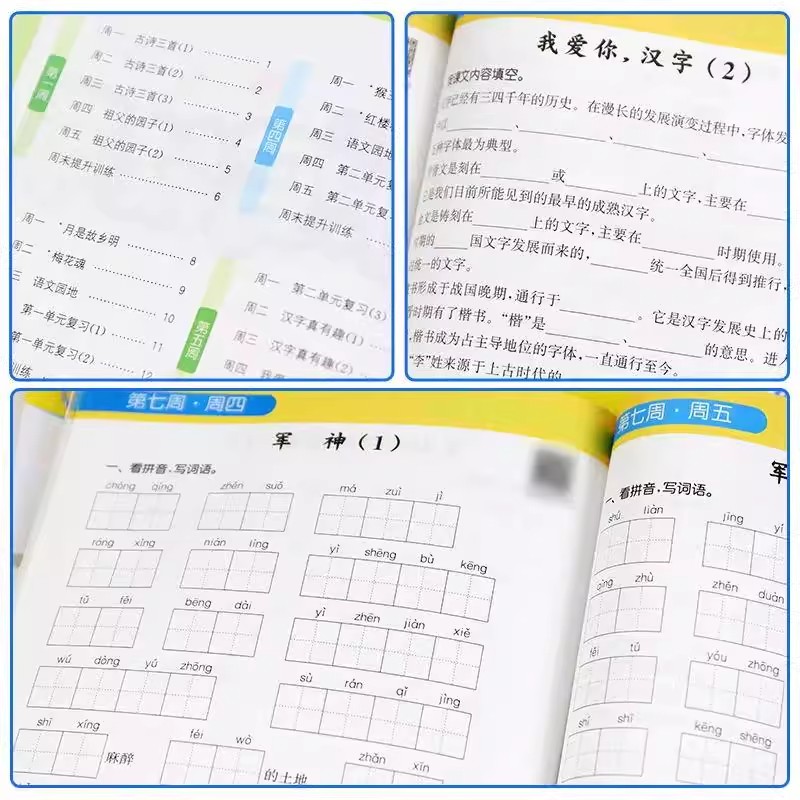 第一周
周一 古诗三首(1) 1
周二 古诗三首(2) 2
周三 古诗三首(3) 3
周四 祖父的园子(1) 4
周五 祖父的园子(2) 5
周末提升训练 6
周一 *月是故乡明 8
周二 *梅花魂 9
周三 语文园地 10
第一单元复习(1) 11
第一单元复习(2) 12
第四周
周一 *猴王
周二 *红楼
周三 语文园地
周四 第二单元复习
周五 第二单元复习
周末提升训练
第五周
周一 第二单元复习(3)
周二 汉字真有趣(1)
周三 汉字真有趣(2)
周四 我爱
我爱你，汉字(2)
课文内容填空。
已经有三四千年的历史。在漫长的发展演变过程中，字体发
、 、 、
种字体最为典型。
骨文是刻在 或 上的文字，主要在
它是我们目前所能见到的最早的成熟汉字。
金文是铸刻在 上的文字，主要在 时期使用。
时期的 国文字发展而来的， 统一全国后得到推行，
统一的文字。
书形成于战国晚期，通行于 。它是汉字发展史上的
时期有了楷书。“楷”是 、 的意思。进入
楷书成为占主导地位的字体，一直通行至今。
“李”姓来源于上古时代的
第七周·周四
军 神(1)
一、看拼音，写词语。
chóng qìng zhěn suǒ má zuì jì
róng xíng nián líng yì shēng bù kēng
tǔ fěi bēng dài yì zhēn jiàn xiě
wú dòng yú zhōng sù rán qǐ jìng
shī xíng 麻醉 féi wò 的土地 zhǎn xīn
第七周·周五
军
一、看拼音，写词语。
shú liàn jīng yí
qīng zhù zhěn duàn
fěi tú yóu zhōng
shī shī kēng shēng